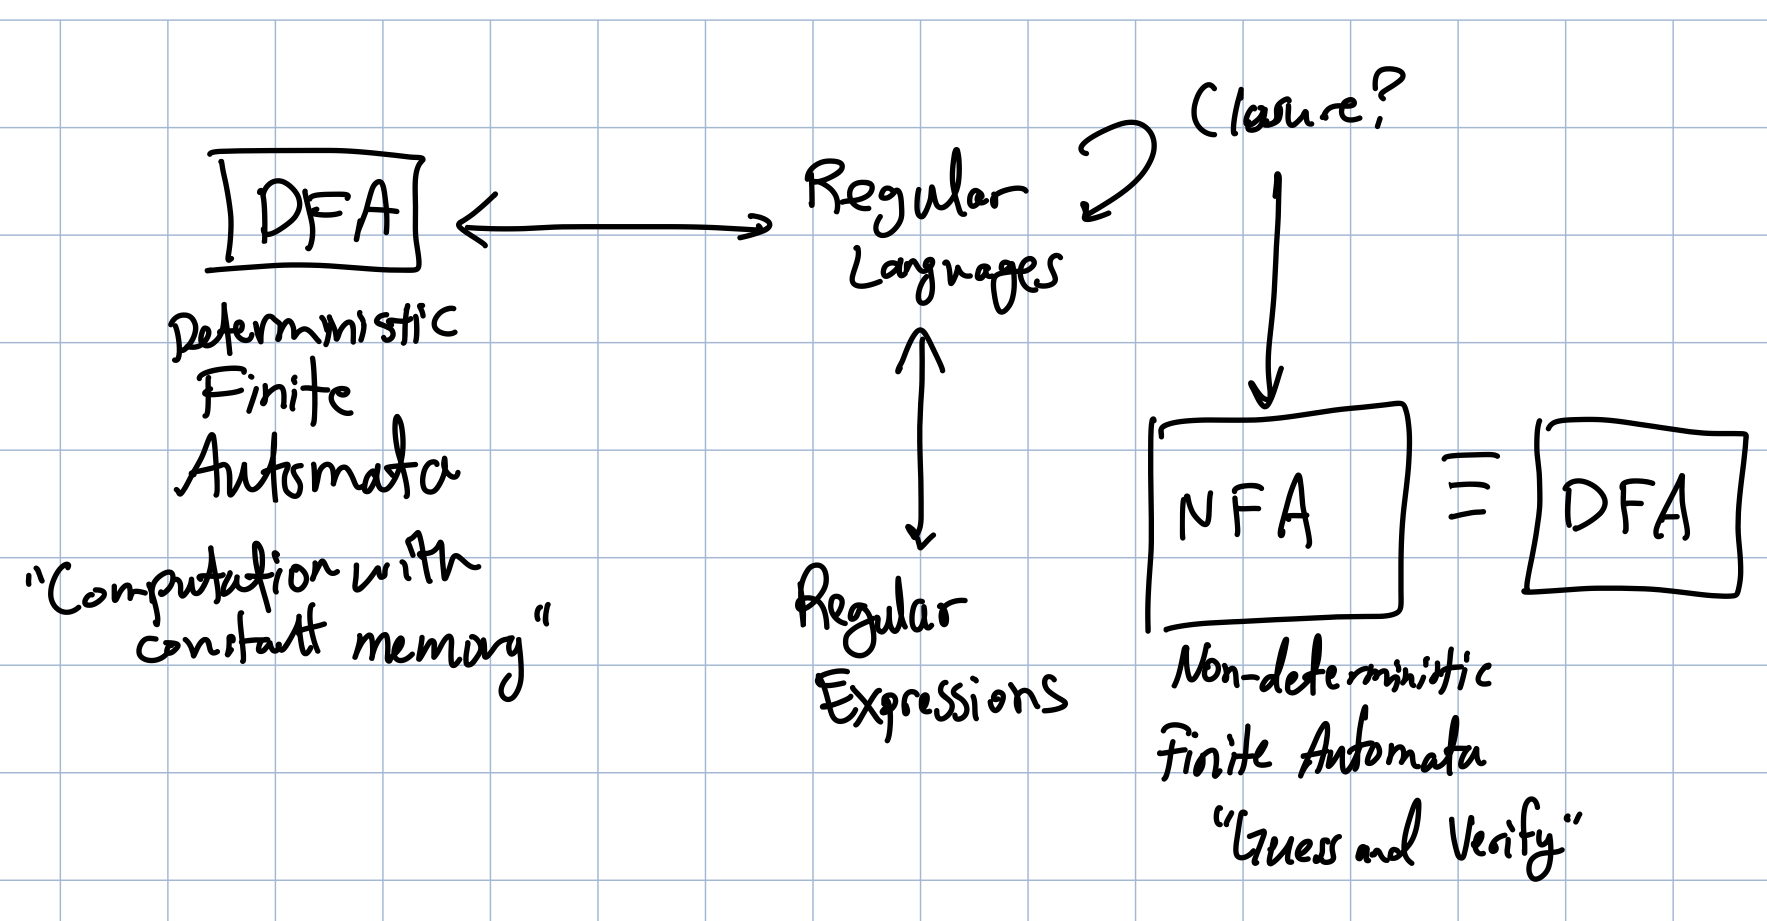 DFA
Deterministic
Finite
Automata
"Computation with
constant memory"
Regular
Languages
Closure?
Regular
Expressions
NFA ≡ DFA
Non-deterministic
Finite Automata
"Guess and Verify"